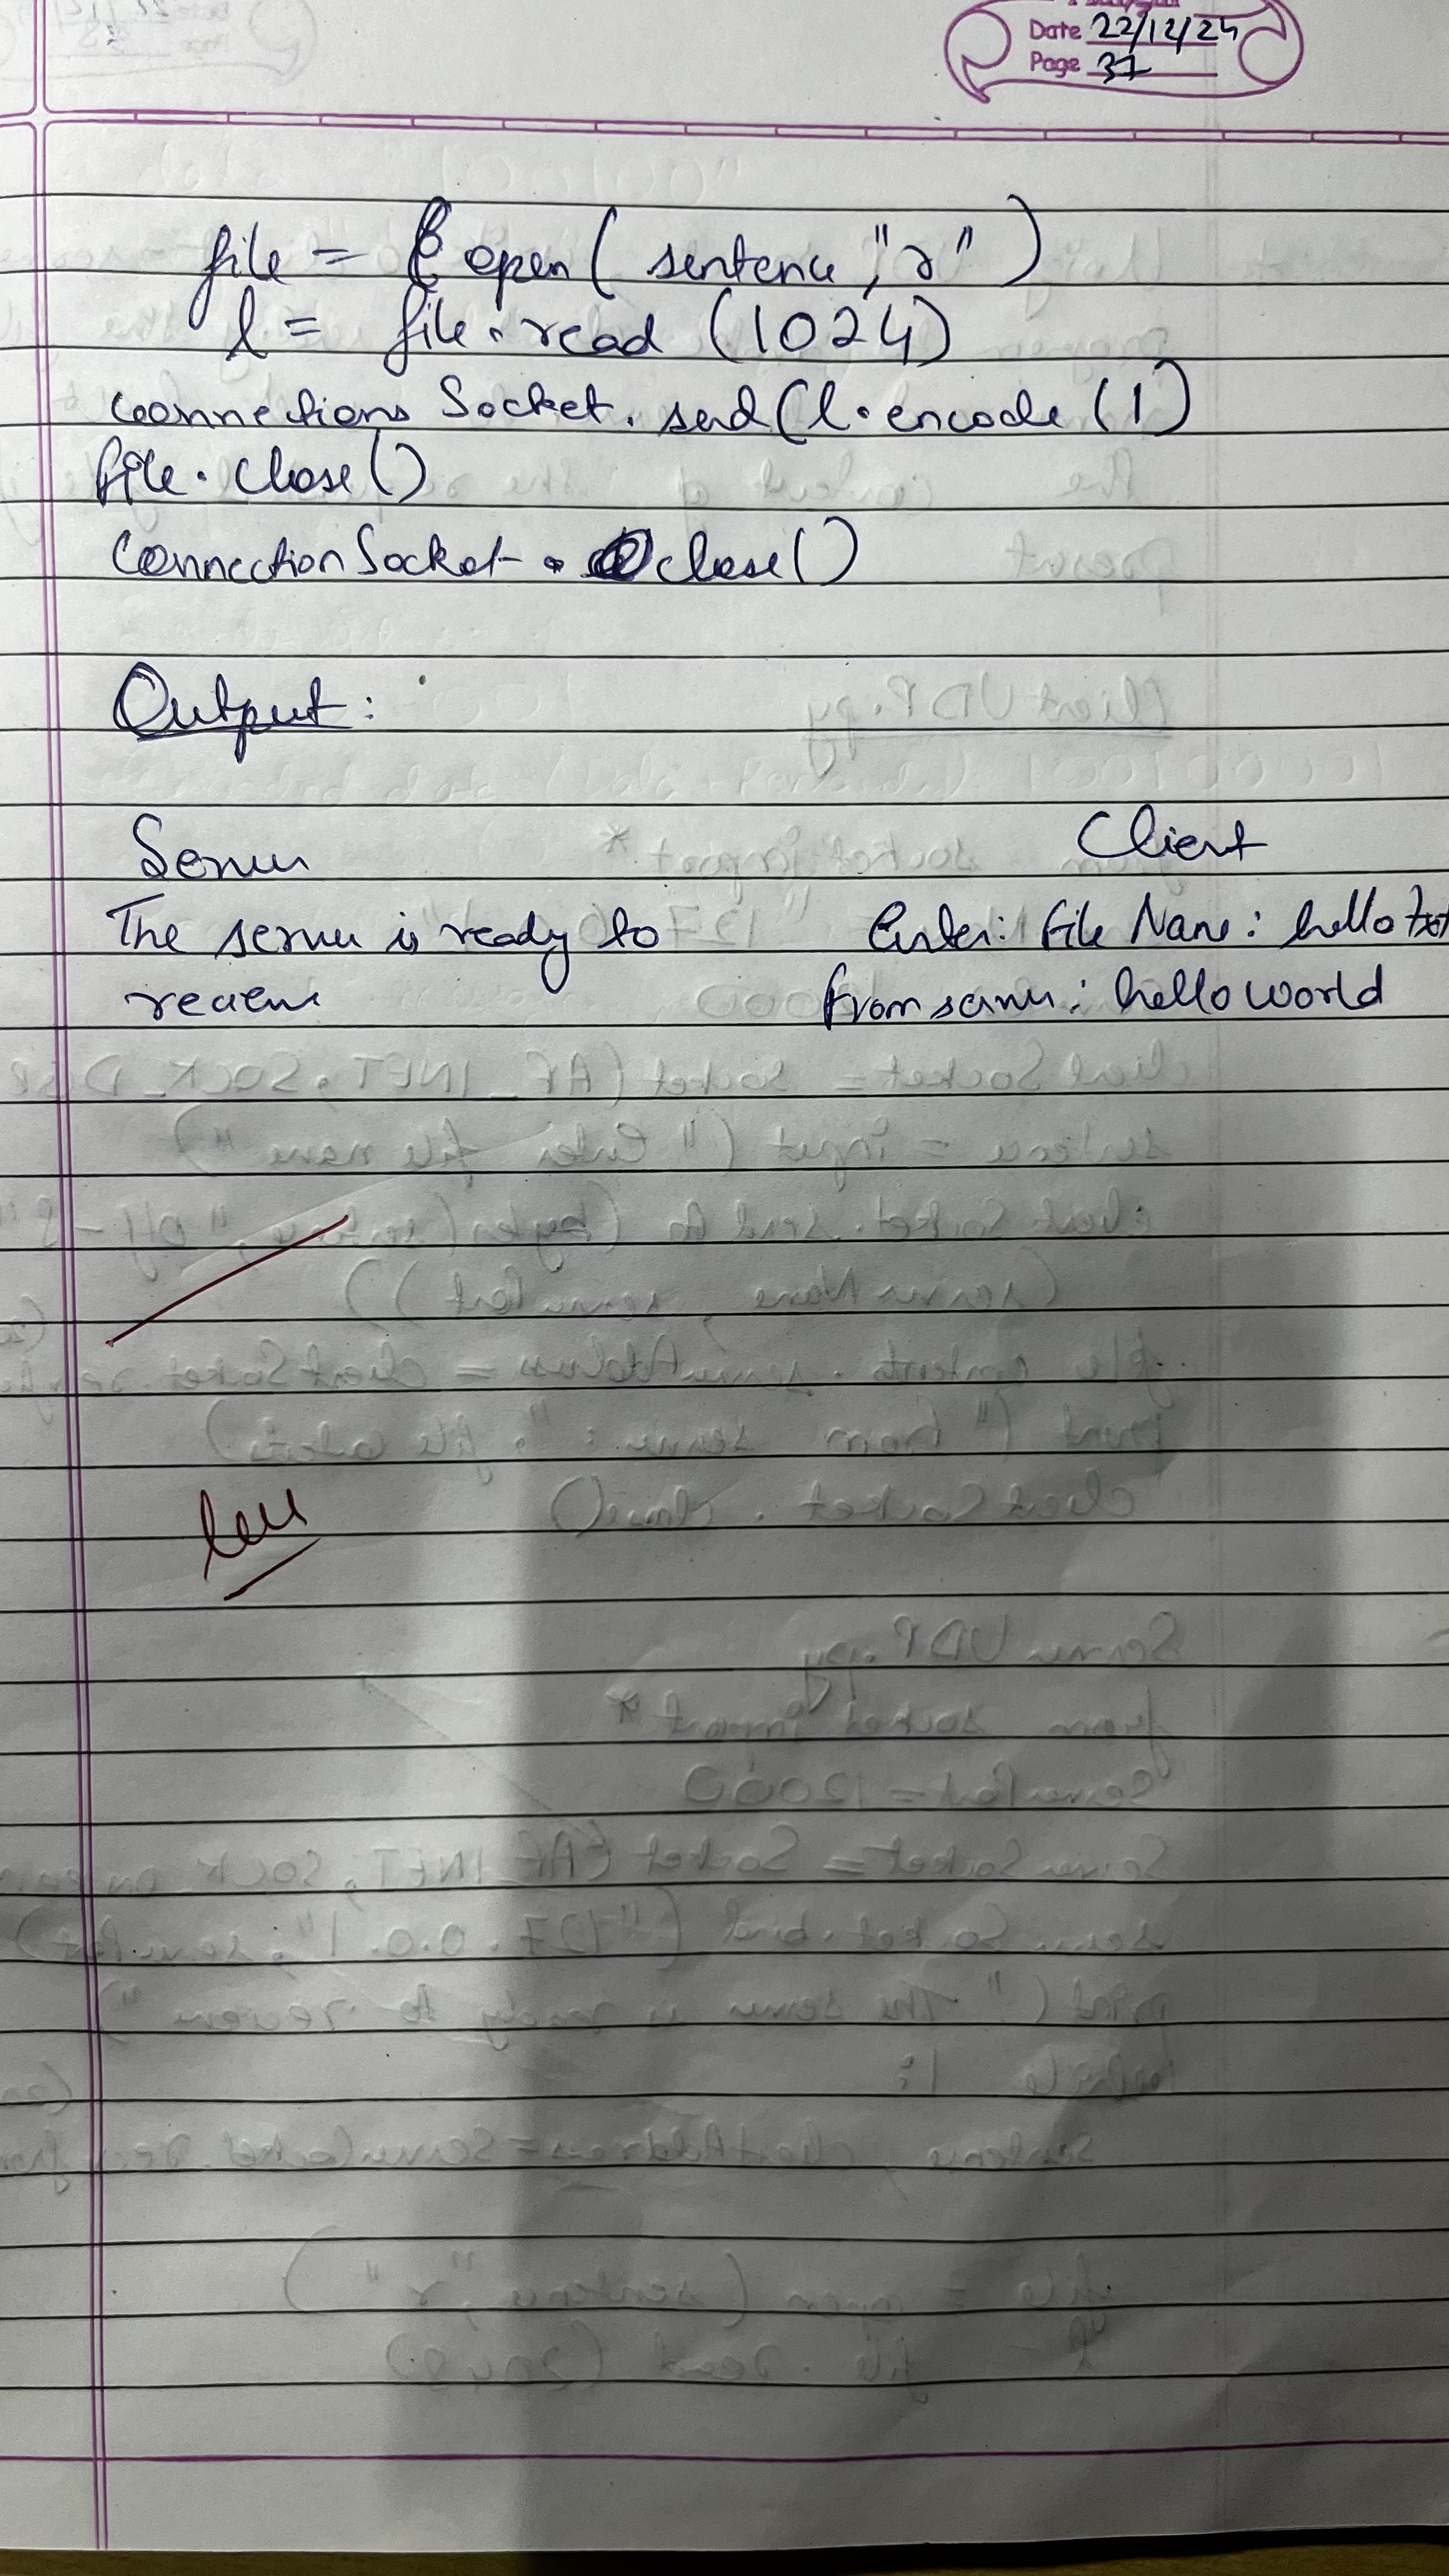 Date 22/12/24
Page 37
file = open( sentence, "r" )
l = file.read (1024)
connections Socket. send(l.encode(1)
file. close()
Connection Socket . close()
Output:
Server Client
The server is ready to Enter: file Name: hello txt
recieve from server: hello world